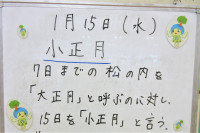 1月15日(水)
小正月
7日までの松の内を
「大正月」と呼ぶのに対し、
15日を「小正月」と言う。